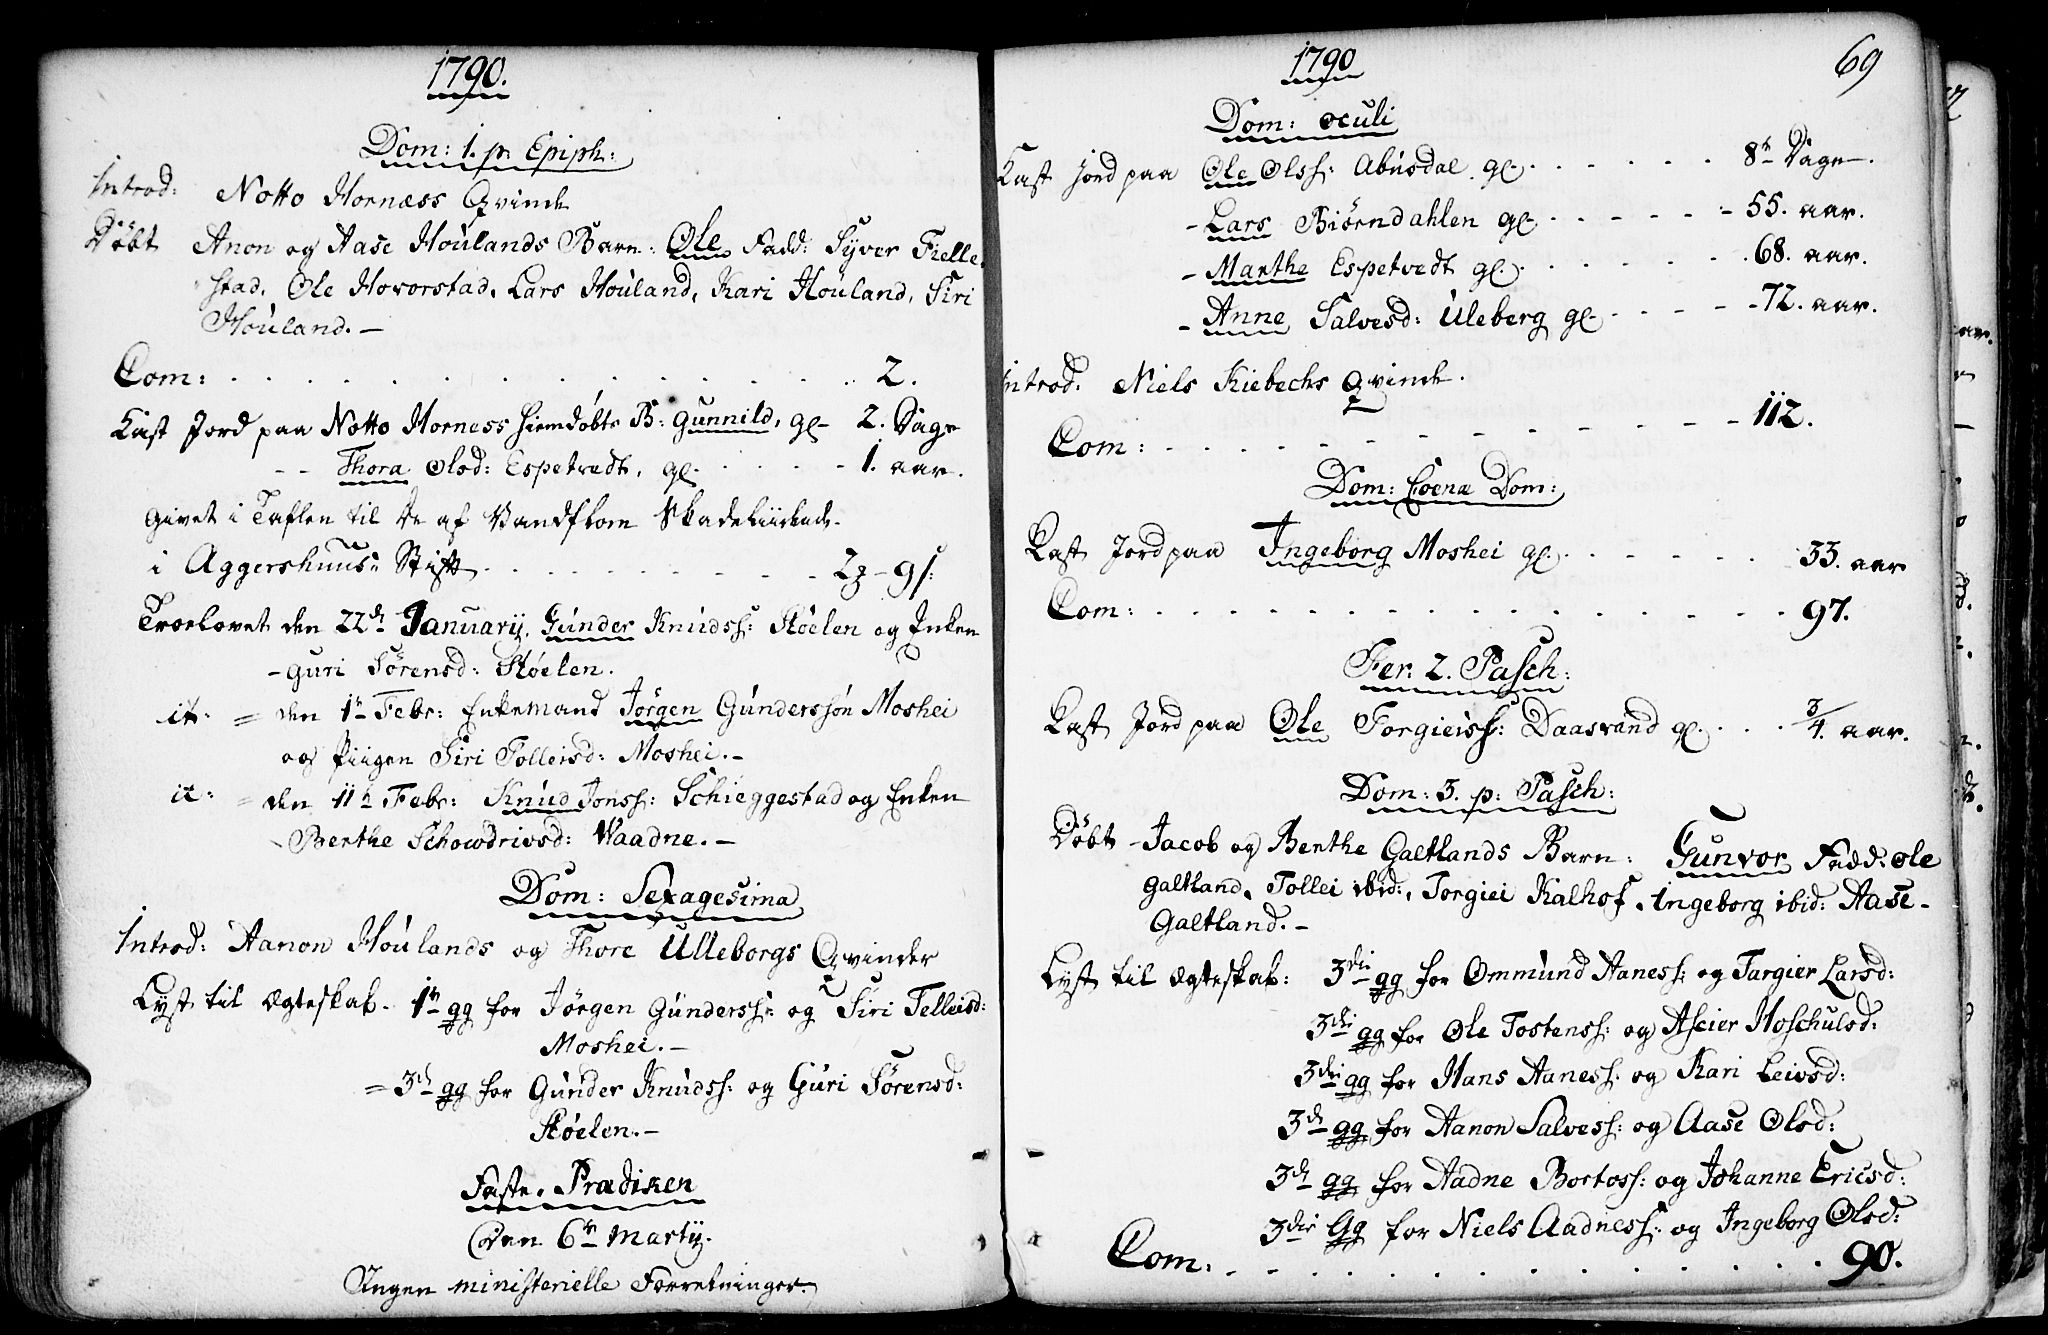 1790.
Dom: 1. p: Epiph:
Introd: Notto Hornæss Qvinde
Döbt Anon og Aase Houlands Barn: Ole Fadd: Syver Fielle-
stad, Ole Hovorstad, Lars Houland, Kari Houland, Siri
Houland. -
Com: . . . . . . . . . . . . 2.
Kast Jord paa Notto Horness hiemdöbte B: Gunnild, gl- 2. Dage
- - Thora Olsd: Espetvedt, gl. . . . . - 1. aar.
Givet i Taflen til de af Vandflom Skadeliidende
i Aggershuus Stift . . . . . . . - 2 - 9 s:
Troelovet den 22de January. Gunder Knudss: Stöelen og Enken
- Guri Sörensd: Stöelen.
it: = den 1te Febr: Enkemand Jörgen Gundersön Moshei
og Piigen Siri Tolleisd: Moshei. -
it: = den 11te Febr: Knud Jonss: Schieggestad og Enken
Berthe Schowdrivsd: Waadne. -
Dom: Sexagesima
Introd: Aanon Houlands og Thore Ulleborgs Qvinder
Lyst til Ægteskab. 1te gg for Jörgen Gunderss: og Siri Tolleisd:
Moshei. -
= 3de gg for Gunder Knudss: og Guri Sörensd:
Stöelen. -
Faste. Prædiken
Den 6te Martij.
Ingen ministerielle Forretninger.
1790
69
Dom: oculi
Kast jord paa Ole Olss: Abusdal. gl. . . . . . . 8te Dage.
- Lars Biörndahlen gl. . . . . . - 55. aar.
- Marthe Espetvedt gl. . . . . . . 68. aar.
- Anne Salvesd: Uleberg gl. - - - - 72. aar.
Introd. Niels Kiebechs Qvinde.
Com: . . . . - - - - - - - - 112.
Dom: Coenæ Dom:
Kast Jord paa Ingeborg Moshei gl. . . . . . . 33. aar
Com: . . . . . . . . . . . . - - - 97.
Fer: 2. Pasch:
Kast Jord paa Ole Torgieiss: Daasvand gl. . . . 3/4. aar.
Dom: 3. p: Pasch:
Döbt - Jacob og Berthe Galtlands Barn: Gunvor Fadd: Ole
Galtland, Tollei ibid:, Torgiei Kalhof, Ingeborg ibid: Aase -
Galtland. -
Lyst til Ægteskab: 3die gg for Ommund Aaness: og Targier Larsd:
3die gg for Ole Tostenss: og Aseier Hoschulsd:
3die gg for Hans Aaness: og Kari Leivsd:
3de gg for Aanon Salvess: og Aase Olsd:
3de gg for Aadne Bortoss: og Johanne Ericsd:
3die Gg for Niels Aadness: og Ingeborg Olsd:
Com: - - - . . . . . . . . . 90.